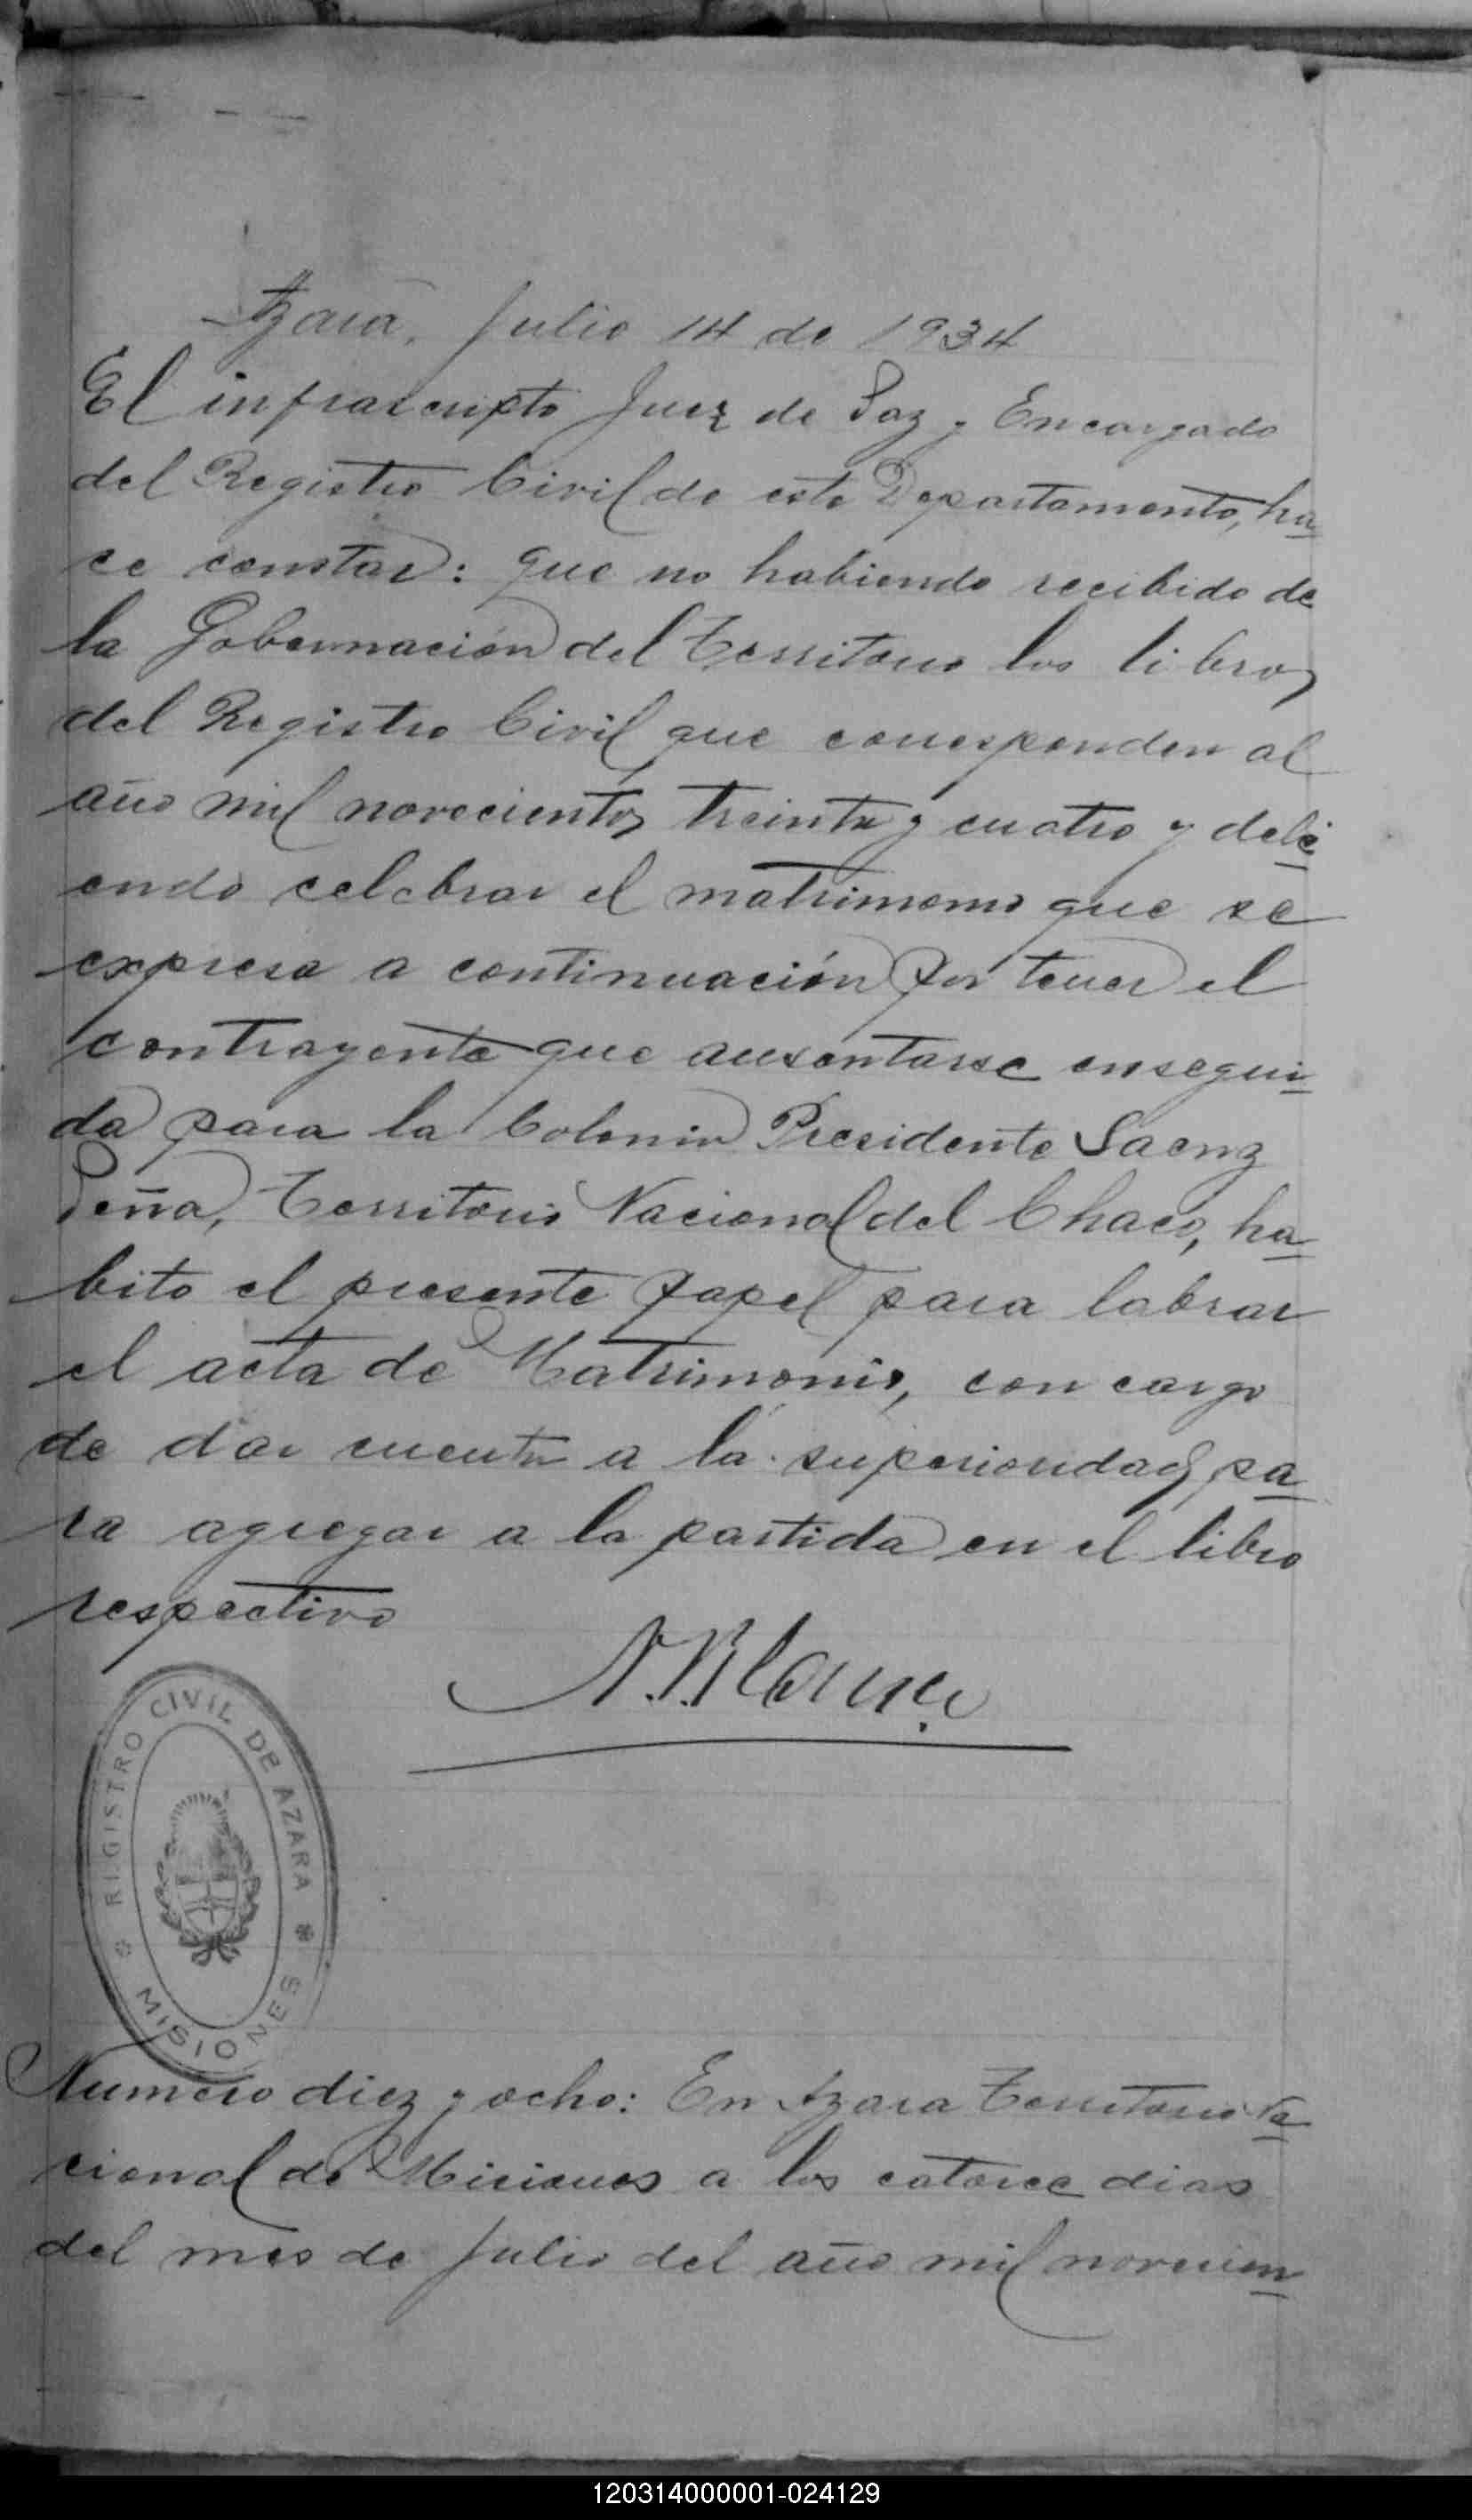 Azara, Julio 14 de 1934
El infrascripto Juez de Paz y Encargado
del Registro Civil de este Departamento, ha
ce constar: que no habiendo recibido de
la Gobernación del Territorio los libros
del Registro Civil que corresponden al
año mil novecientos treinta y cuatro y debi
endo celebrar el matrimonio que se
expresa a continuación por tener el
contrayente que ausentarse ensegui
da para la Colonia Presidente Saenz
Peña, Territorio Nacional del Chaco, ha
bito el presente papel para labrar
el acta de Matrimonio, con cargo
de dar cuenta a la superioridad pa
ra agregar a la partida en el libro
respectivo
REGISTRO CIVIL DE AZARA
MISIONES
Numero diez y ocho: En Azara Territorio Na
cional de Misiones a los catorce dias
del mes de Julio del año mil novecien
120314000001-024129